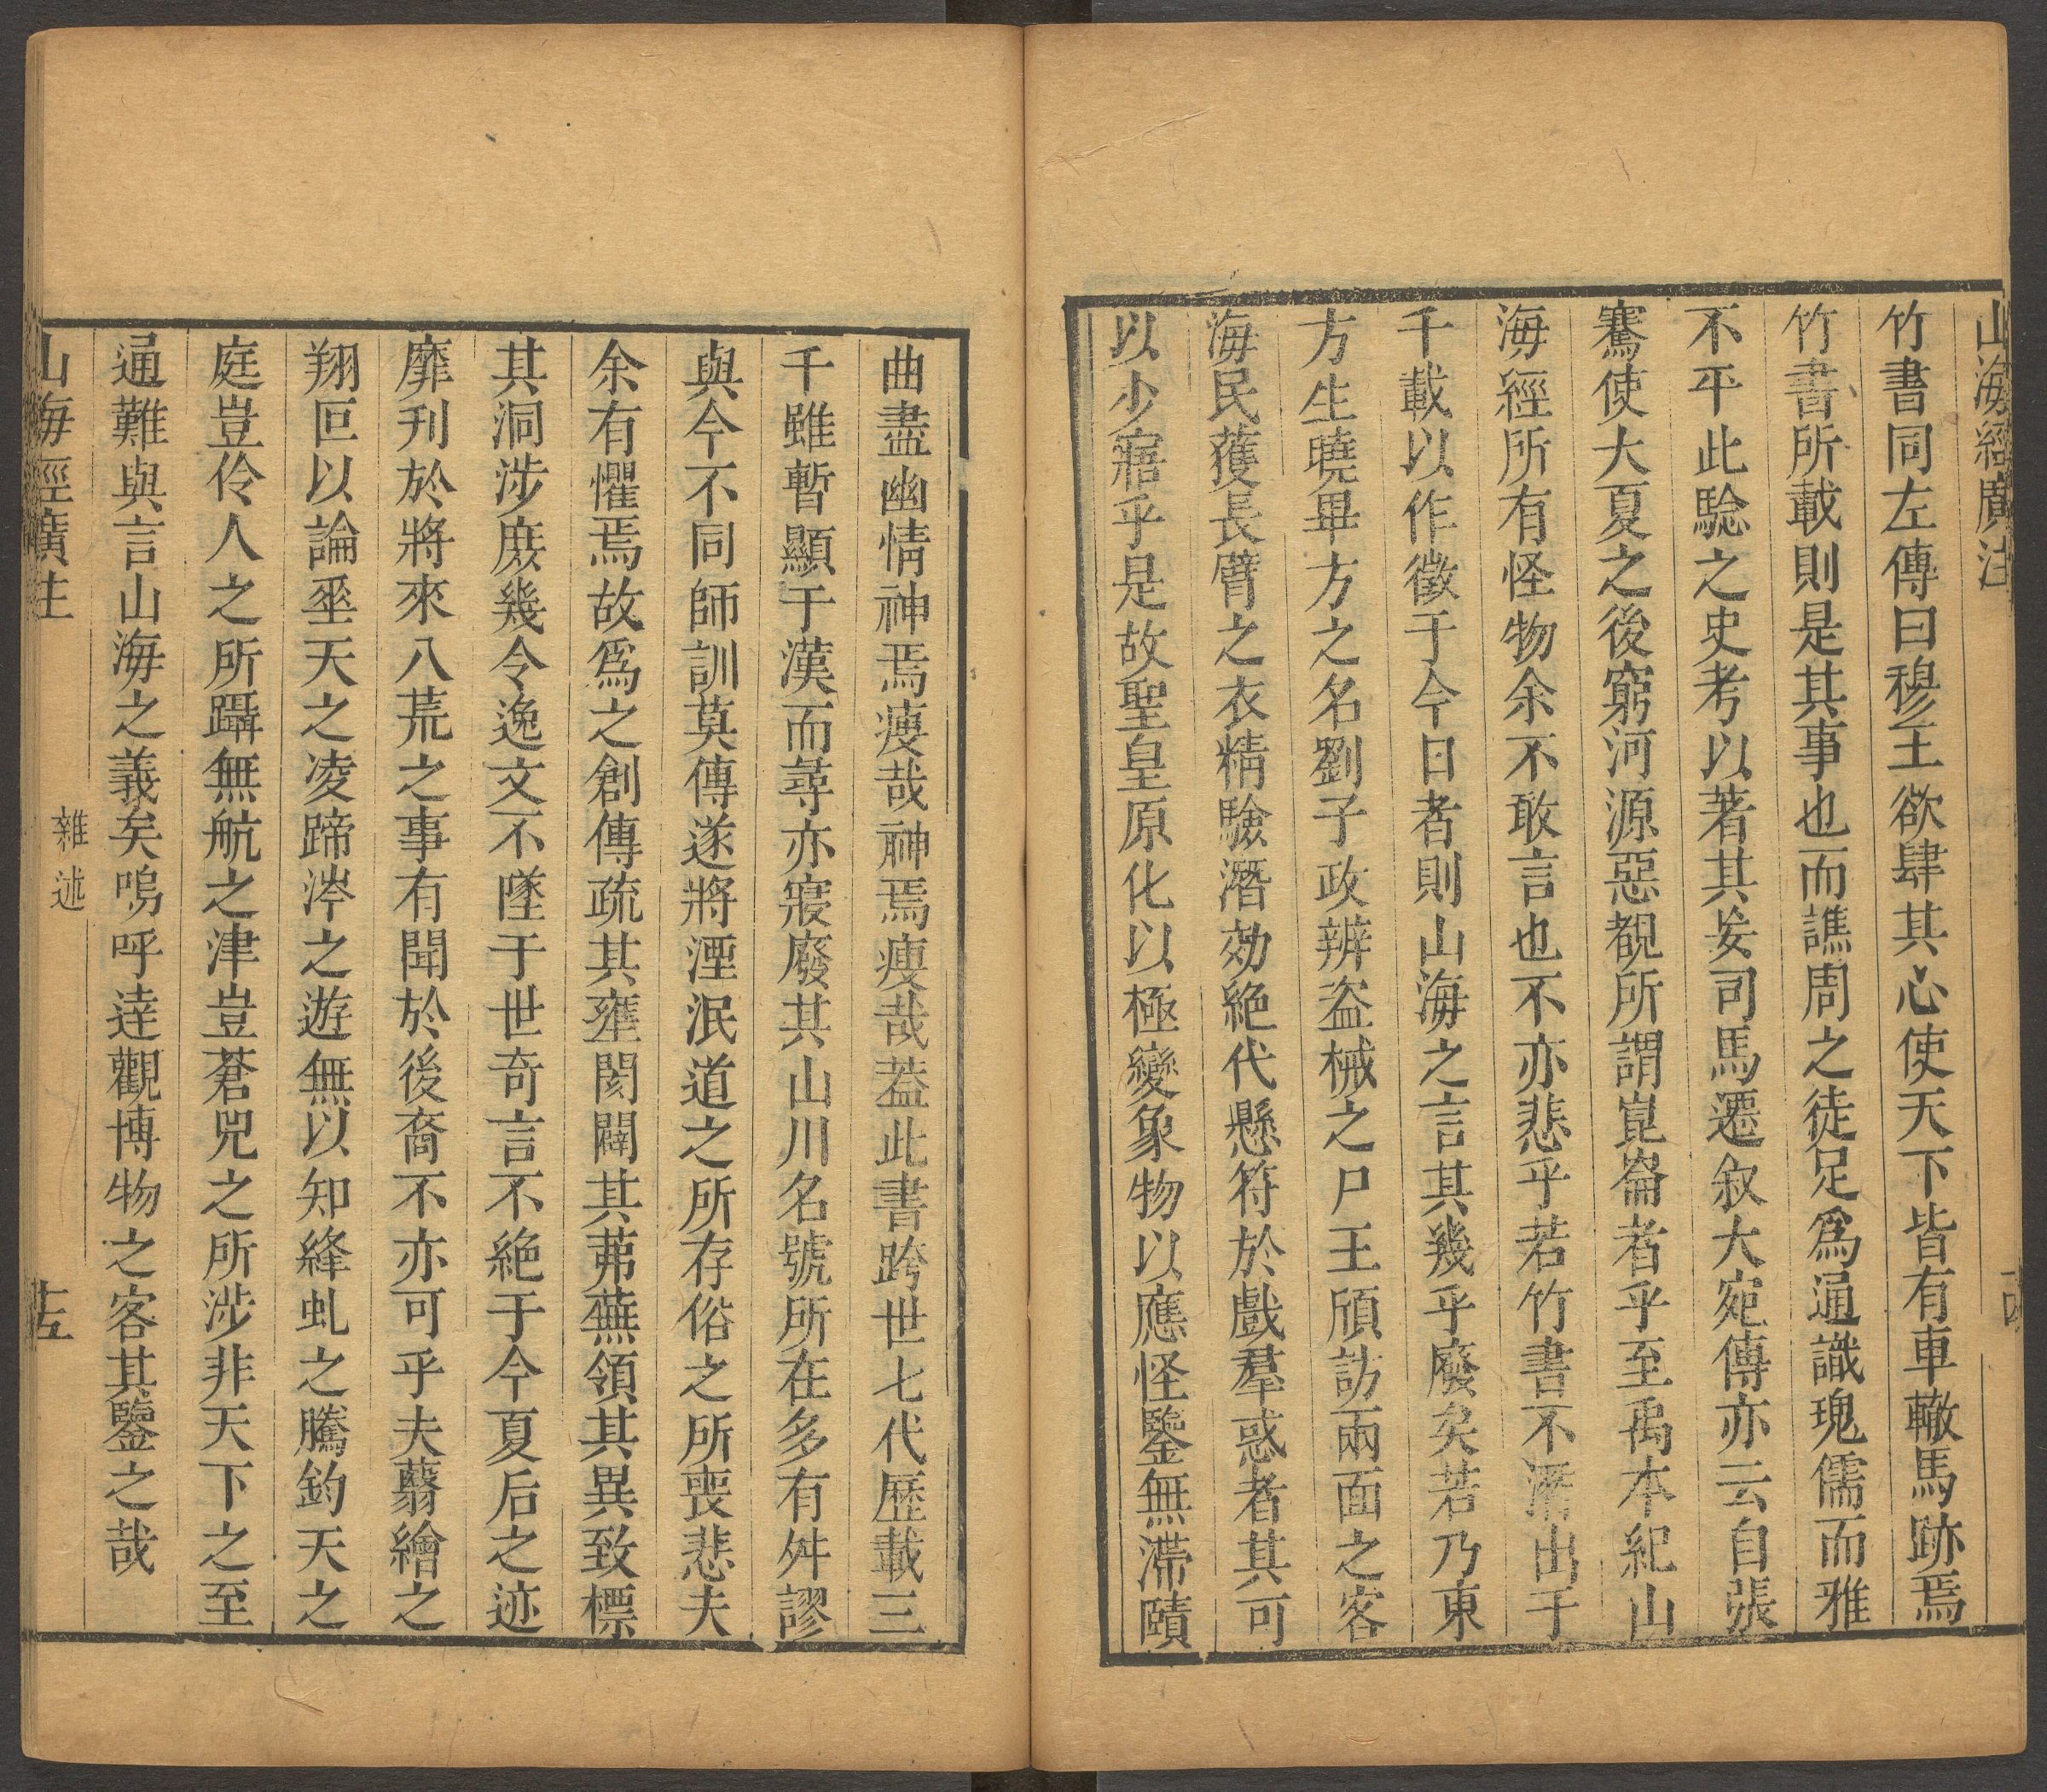 山海經廣注
十四
竹書同左傳曰穆王欲肆其心使天下皆有車轍馬跡焉
竹書所載則是其事也而譙周之徒足為通識瑰儒而雅
不平此騐之史考以著其妄司馬遷叙大宛傳亦云自張
騫使大夏之後窮河源惡覩所謂崑崙者乎至禹本紀山
海經所有怪物余不敢言也不亦悲乎若竹書不潛出于
千載以作徵于今日者則山海之言其幾乎廢矣若乃東
方生曉畢方之名劉子政辨盗械之尸王頎訪兩面之客
海民獲長臂之衣精驗潛効絶代懸符於戲羣惑者其可
以少寤乎是故聖皇原化以極變象物以應怪鑒無滯賾
曲盡幽情神焉瘦哉神焉瘦哉葢此書跨世七代歷載三
千雖暫顯于漢而尋亦寢廢其山川名號所在多有舛謬
與今不同師訓莫傳遂將湮泯道之所存俗之所喪悲夫
余有懼焉故爲之創傳疏其壅閡闢其茀蕪領其異致標
其洞涉庻幾令逸文不墜于世奇言不絶于今夏后之迹
靡刋於將來八荒之事有聞於後裔不亦可乎夫蘙繪之
翔叵以論垂天之凌蹄涔之遊無以知絳虬之騰鈞天之
庭豈伶人之所躡無航之津豈蒼兕之所涉非天下之至
通難與言山海之義矣嗚呼逹觀博物之客其鑒之哉
山海經廣注
雜述
十五